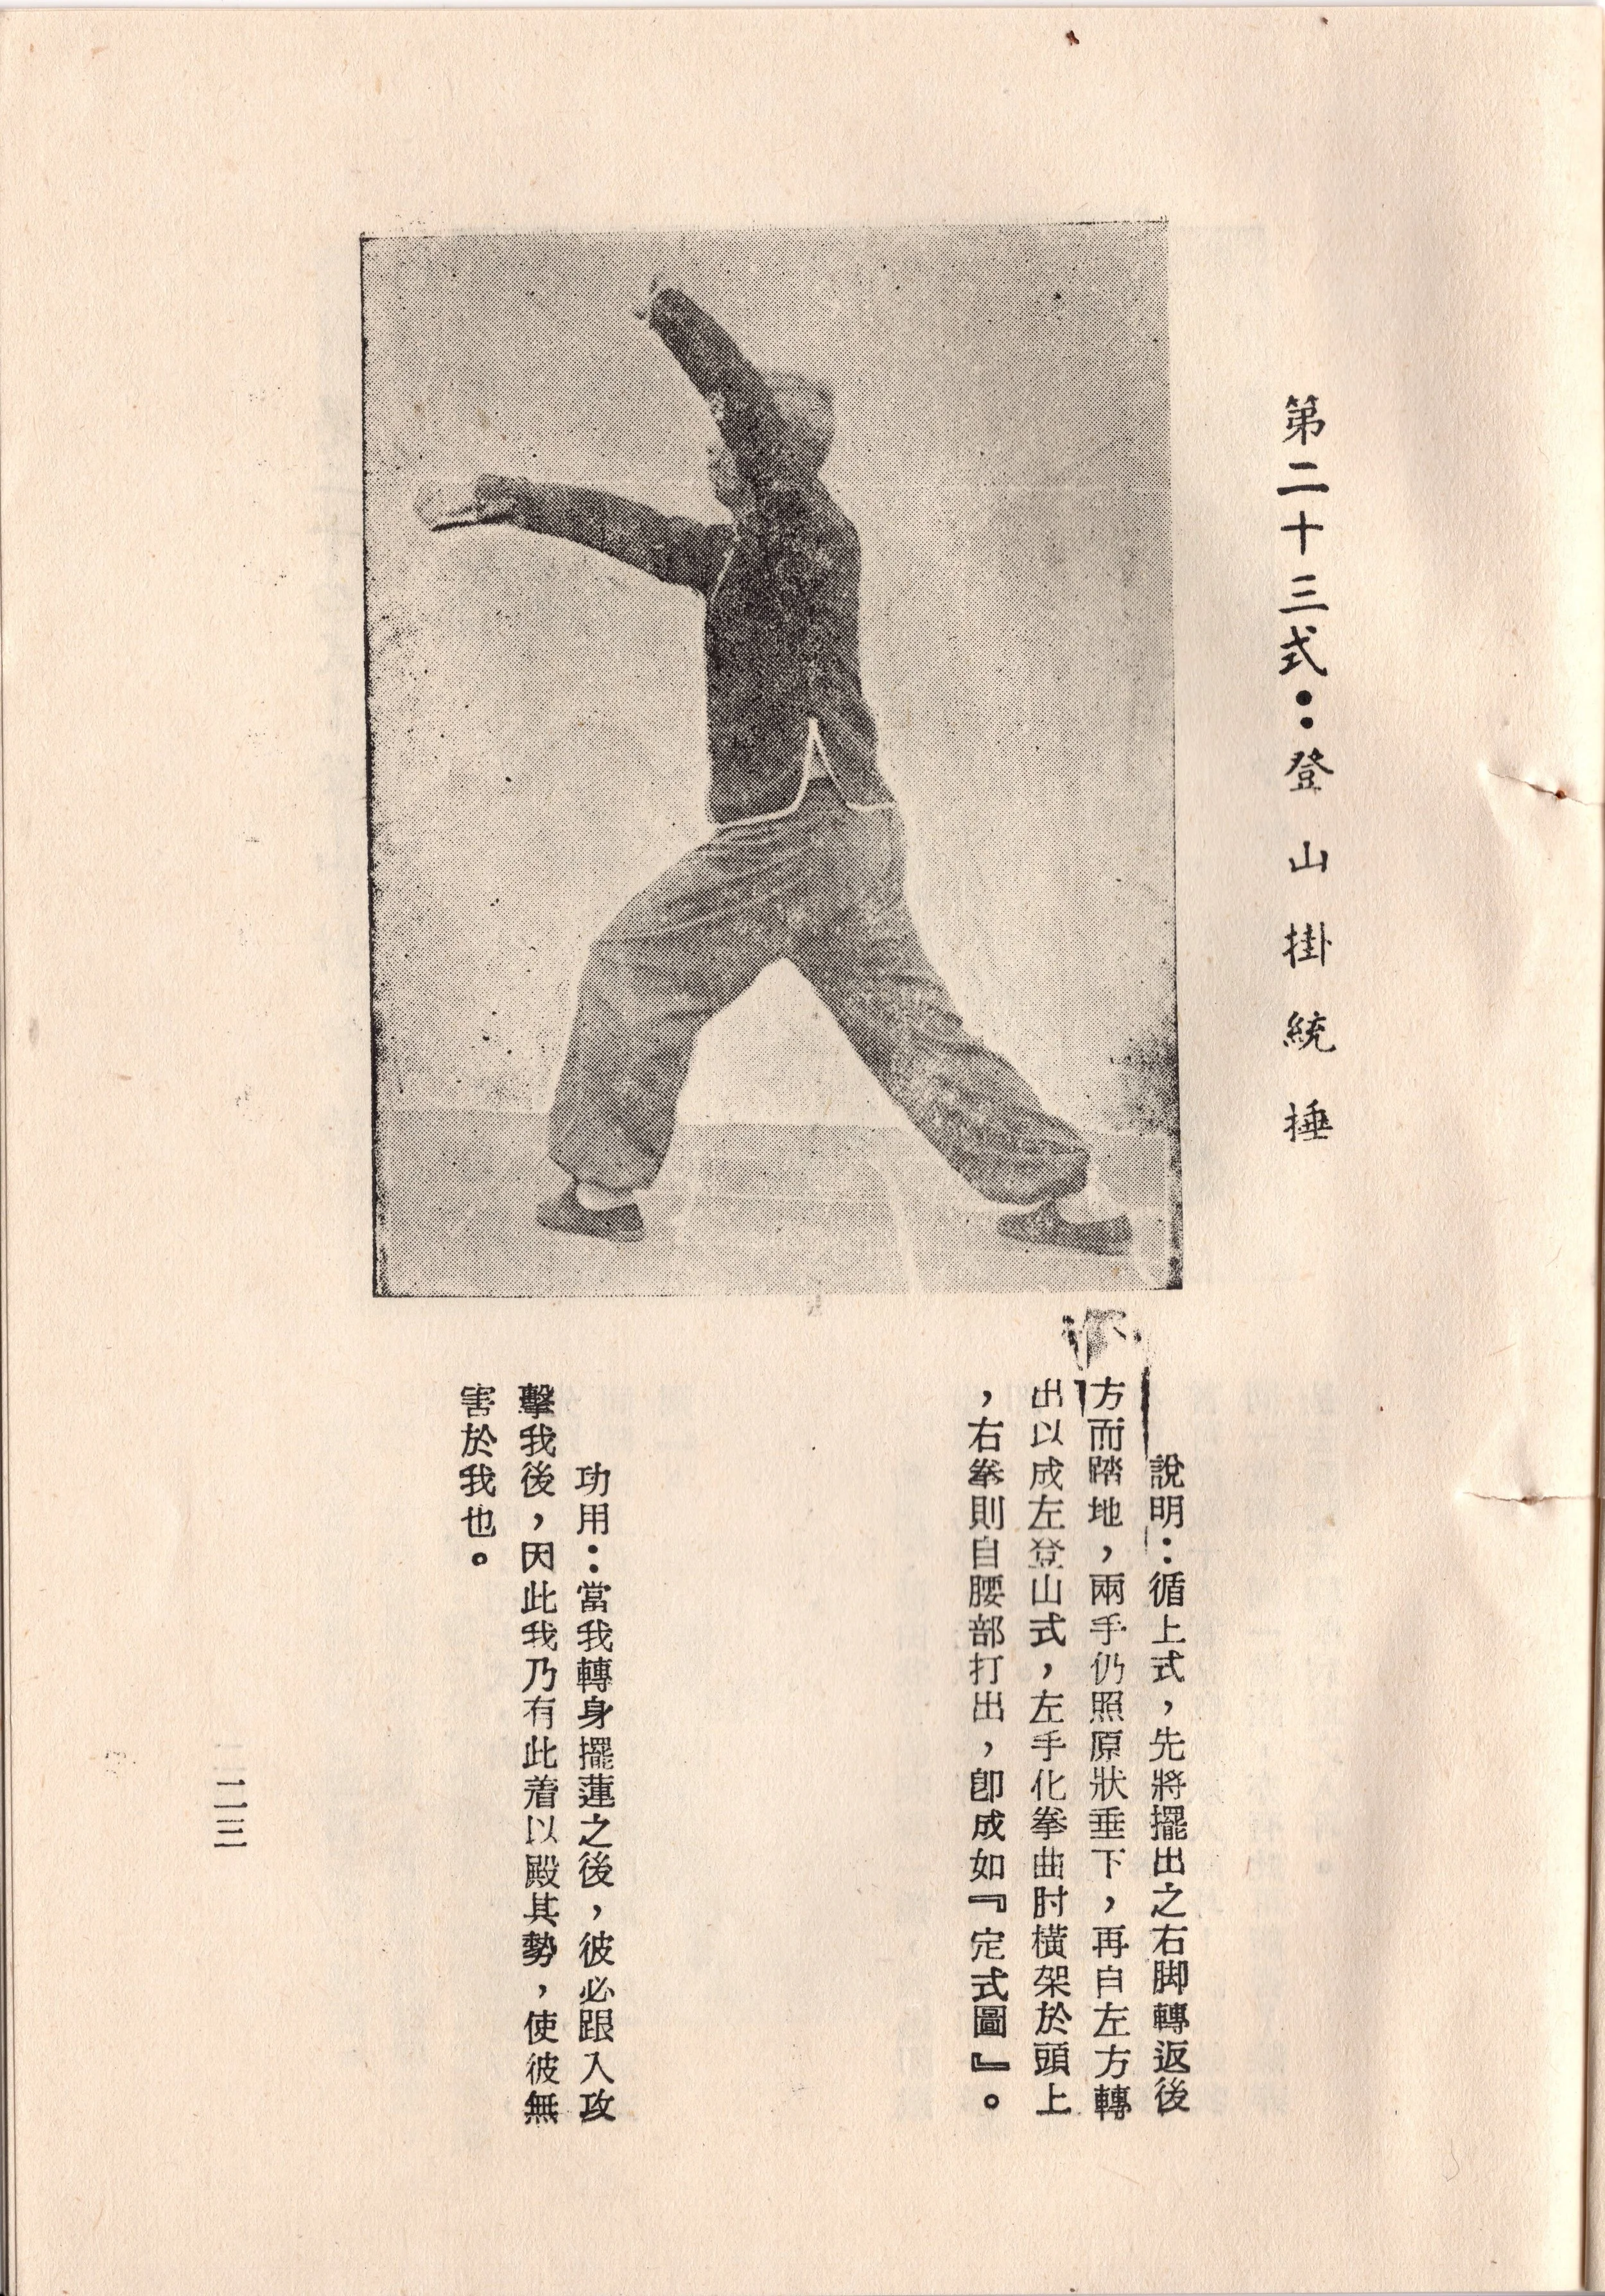 第二十三式：登山掛統捶
說明：循上式，先將擺出之右脚轉返後
方而踏地，兩手仍照原狀垂下，再自左方轉
出以成左登山式，左手化拳曲肘橫架於頭上
，右拳則自腰部打出，卽成如『定式圖』。
功用：當我轉身擺蓮之後，彼必跟入攻
擊我後，因此我乃有此着以殿其勢，使彼無
害於我也。
二三